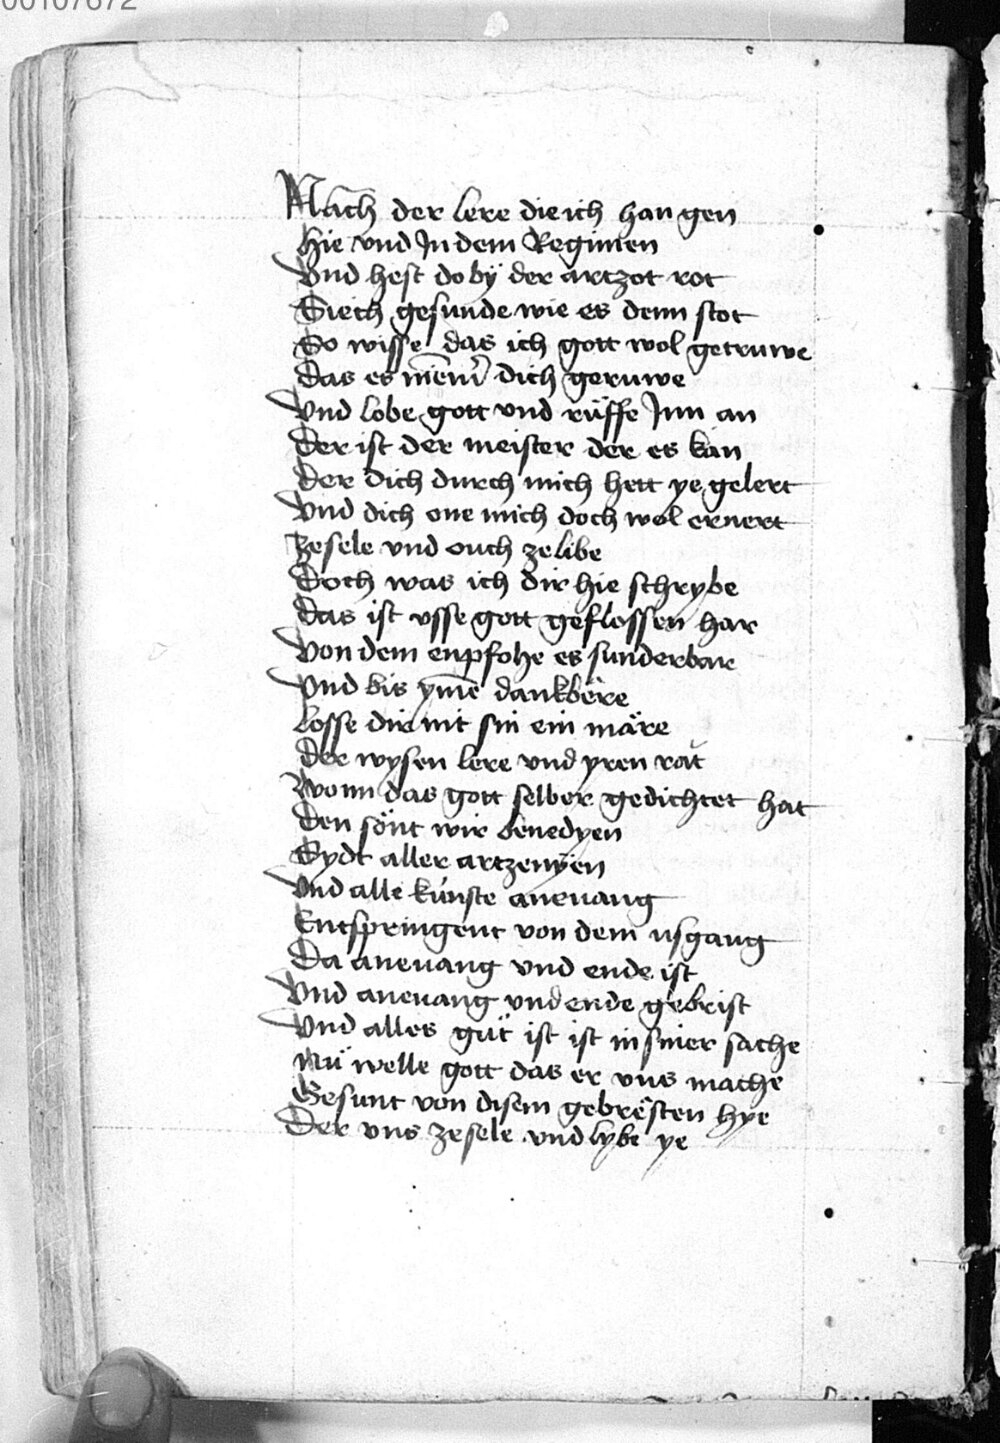 00107672
Nach der lere die ich han gen
Hie vnd Jn dem Regimen
Vnd hest do bÿ der artzot rot
Siech gesunde wie es denn stot
So wisse das ich gott wol getruwe
Das es niemr̄ dich geruwe
Vnd lobe gott vnd rüffe Jnn an
Der ist der meister der es kan
Der dich durch mich hett ye gelert
Vnd dich one mich doch wol ernert
Ze sele vnd ouch ze libe
Doch was ich dir hie schrybe
Das ist vsse gott geflossen har
Von dem enpfohe es sunderbar
Vnd bis yme dankbëre
Losse dir nit sin ein märe
Der wysen lere vnd yren răt
Wonn das gott selber gedichtet hat
Den sönt wir benedyen
Sydt aller artzenÿen
Vnd alle künste aneuang
Entspringent von dem usgang
Da aneuang vnd ende ist
Vnd aneuang vnd ende gebrist
Vnd alles güt ist ist in siner sache
Nü welle gott das er vns mache
Gesunt von disem gebrësten hye
Der vns ze sele vnd lybe ye